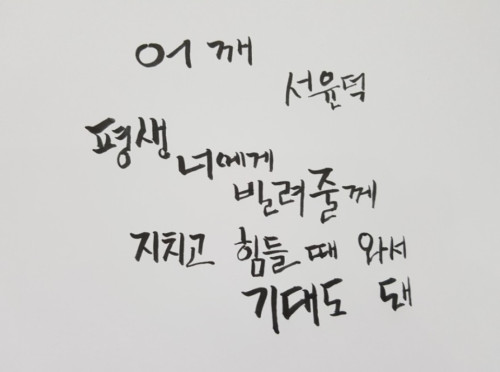 어깨
서윤덕
평생 너에게
빌려줄께
지치고 힘들 때 와서
기대도 돼